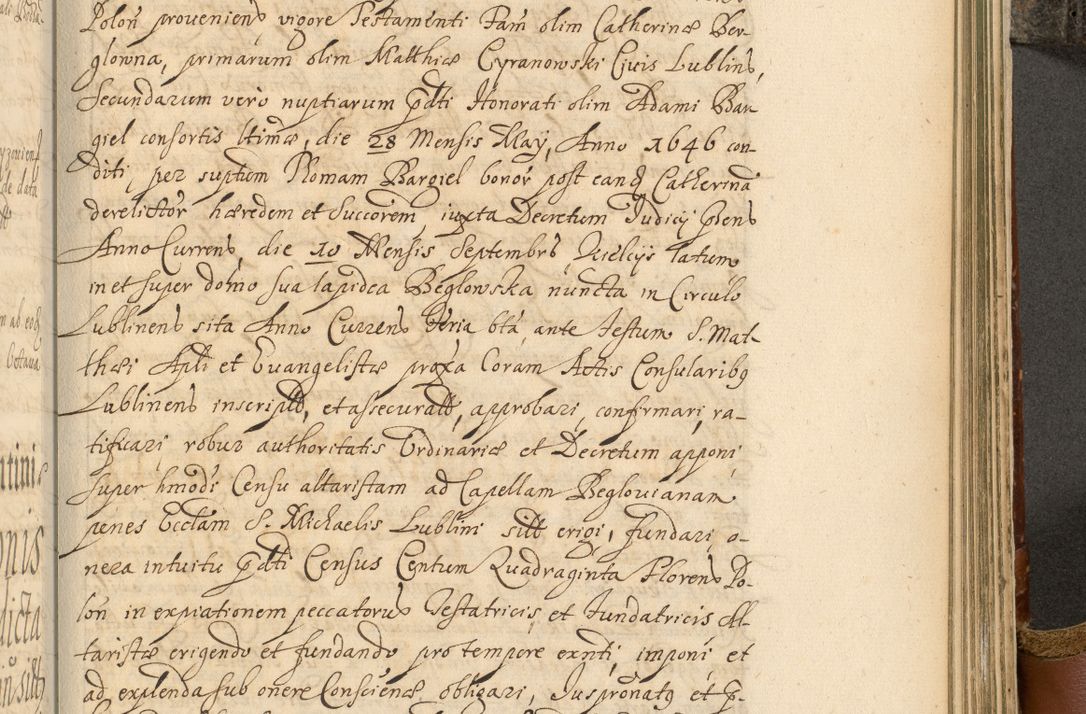 Polon provenien vigore Testamenti Fam olim Catherinæ Ber-
glowna, primarum olim Matthiæ Cyranowski Civis Lublin,
Secundarum vero nuptiarum pdti Honorati olim Adami Bar
giel consortis ltimæ, die 28 Mensis May, Anno 1646 con
diti, per suptum Romam Bargiel bonor post eand Catherina
derelictor hæredem et Succorem, iuxta Decretum Judicy psens
Anno Currens, die 10 Mensis Septembrs Kielcys latum
in et super domo sua lapidea Beglowska nuncta in Circulo
Lublinens sita Anno Currens feria bta ante festum S. Mat-
thæi Apli et Evangelistæ proxa Coram Actis Consularibq
Lublinens inscriptt, et assecuratt, approbari, confirmari, ra-
tificari, robur authoritatis Ordinariæ et Decretum apponi,
super hmodi Censu altaristam ad Capellam Beglovianam
penes Ecclam S. Michaelis Lublini sitt erigi, fundari o-
nera intuitu pdti Census Centum Quadraginta Floren Po-
lon in expiationem peccatorus Testatricis, et fundatricis Al-
taristæ erigendo et fundando pro tempore exnti, imponi et
ad explenda sub onere Conscienæ obligari, Juspronatq et p-